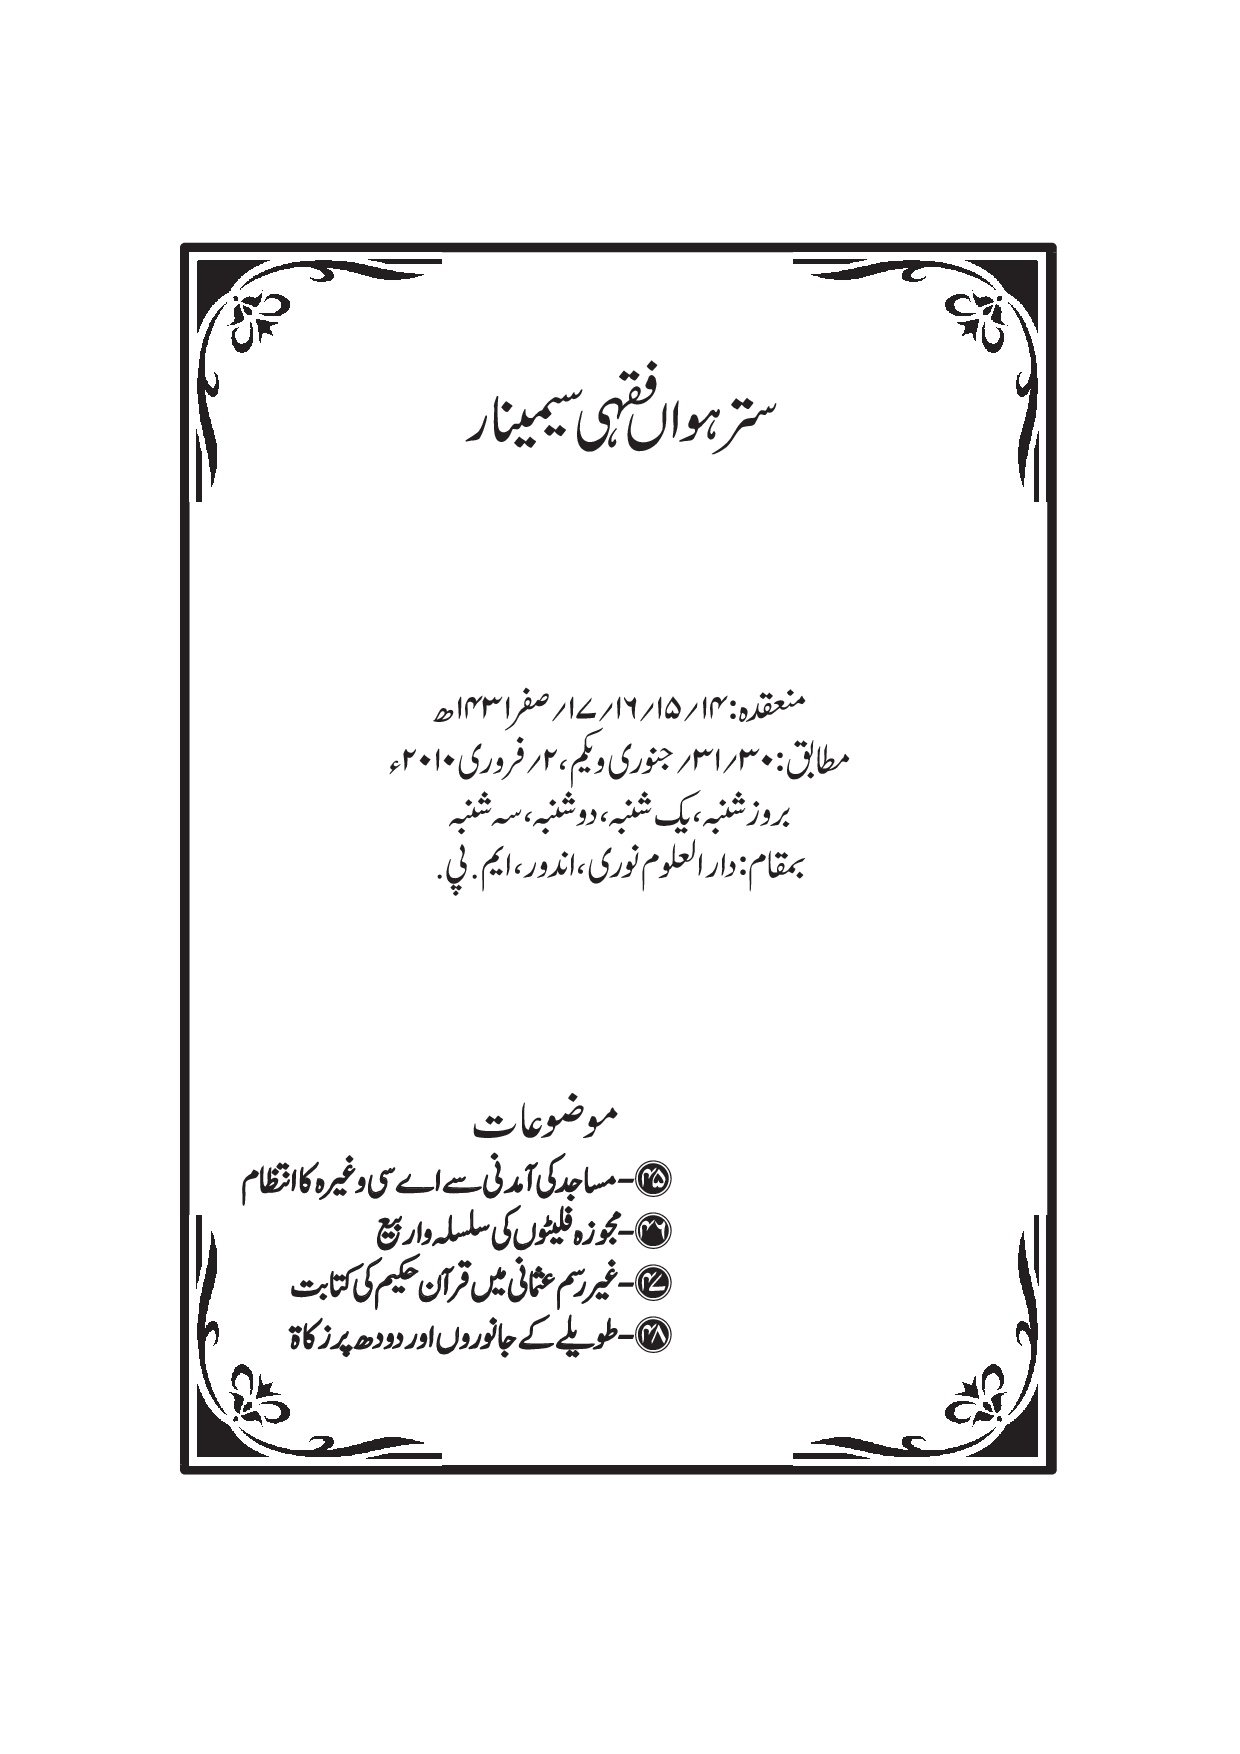 سترہواں فقہی سیمینار
منعقدہ: ۱۴؍ ۱۵؍ ۱۶؍ ۱۷؍ صفر ۱۴۳۱ھ
مطابق: ۳۰؍ ۳۱؍ جنوری و یکم، ۲؍ فروری ۲۰۱۰ء
بروز شنبہ، یک شنبہ، دو شنبہ، سہ شنبہ
بمقام: دار العلوم نوری، اندور، ایم. پی.
موضوعات
۴۵-مساجد کی آمدنی سے اے سی وغیرہ کا انتظام
۴۶-مجوزہ فلیٹوں کی سلسلہ وار بیع
۴۷-غیر رسم عثمانی میں قرآن حکیم کی کتابت
۴۸-طویلے کے جانوروں اور دودھ پر زکاۃ